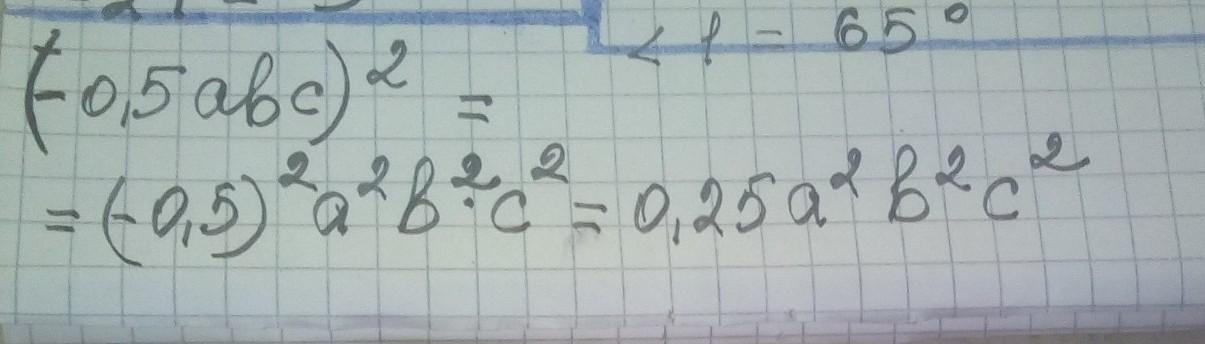 < 1 = 65°
(-0,5abc)² =
= (-0,5)²a²b²·c² = 0,25a²b²c²